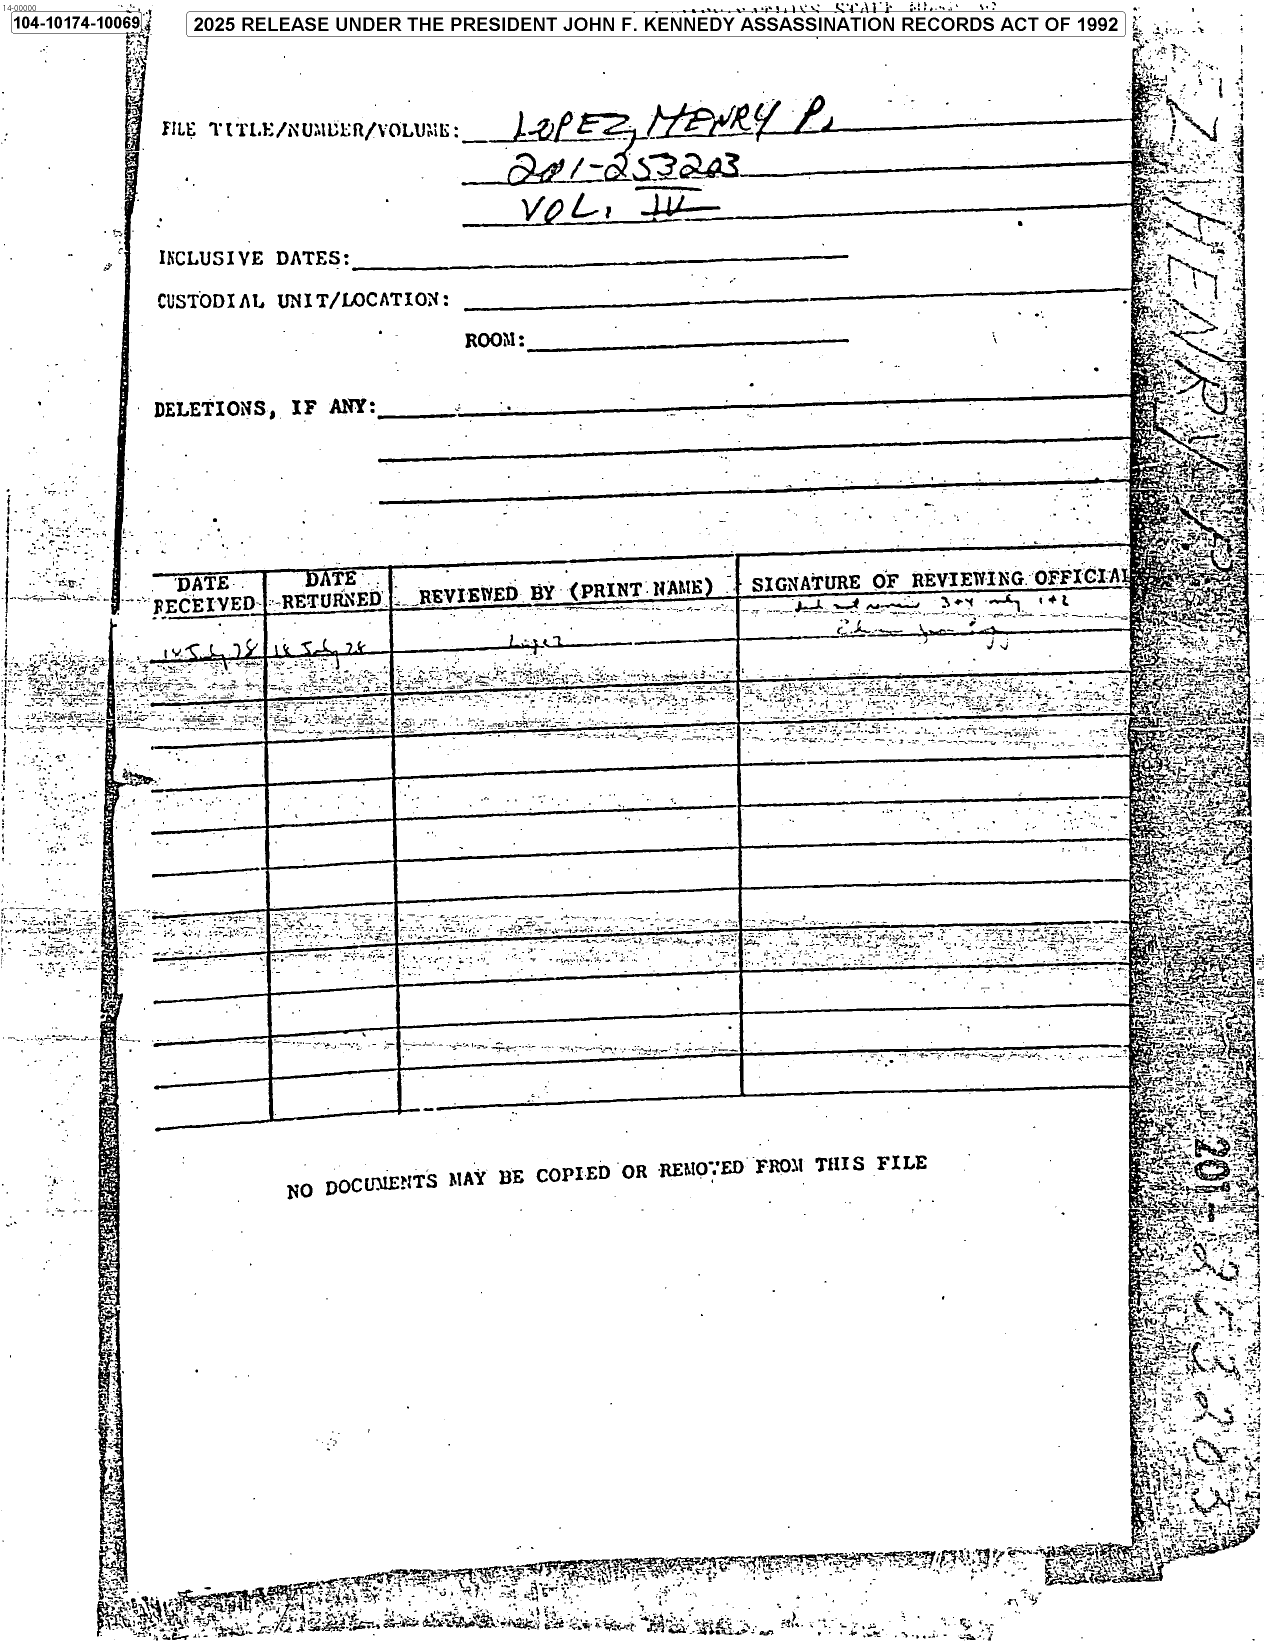 14-00000
104-10174-10069
2025 RELEASE UNDER THE PRESIDENT JOHN F. KENNEDY ASSASSINATION RECORDS ACT OF 1992
FILE TITLE/NUMBER/VOLUME: LOPEZ, HENRY P.
201-253203
VOL. IV
INCLUSIVE DATES:
CUSTODIAL UNIT/LOCATION:
ROOM:
DELETIONS, IF ANY:
DATE RECEIVED
DATE RETURNED
REVIEWED BY (PRINT NAME)
SIGNATURE OF REVIEWING OFFICIAL
did not review 3+4 only 1+2
18 July 78
Lopez
NO DOCUMENTS MAY BE COPIED OR REMOVED FROM THIS FILE
Z, HENRY P.
201-253203